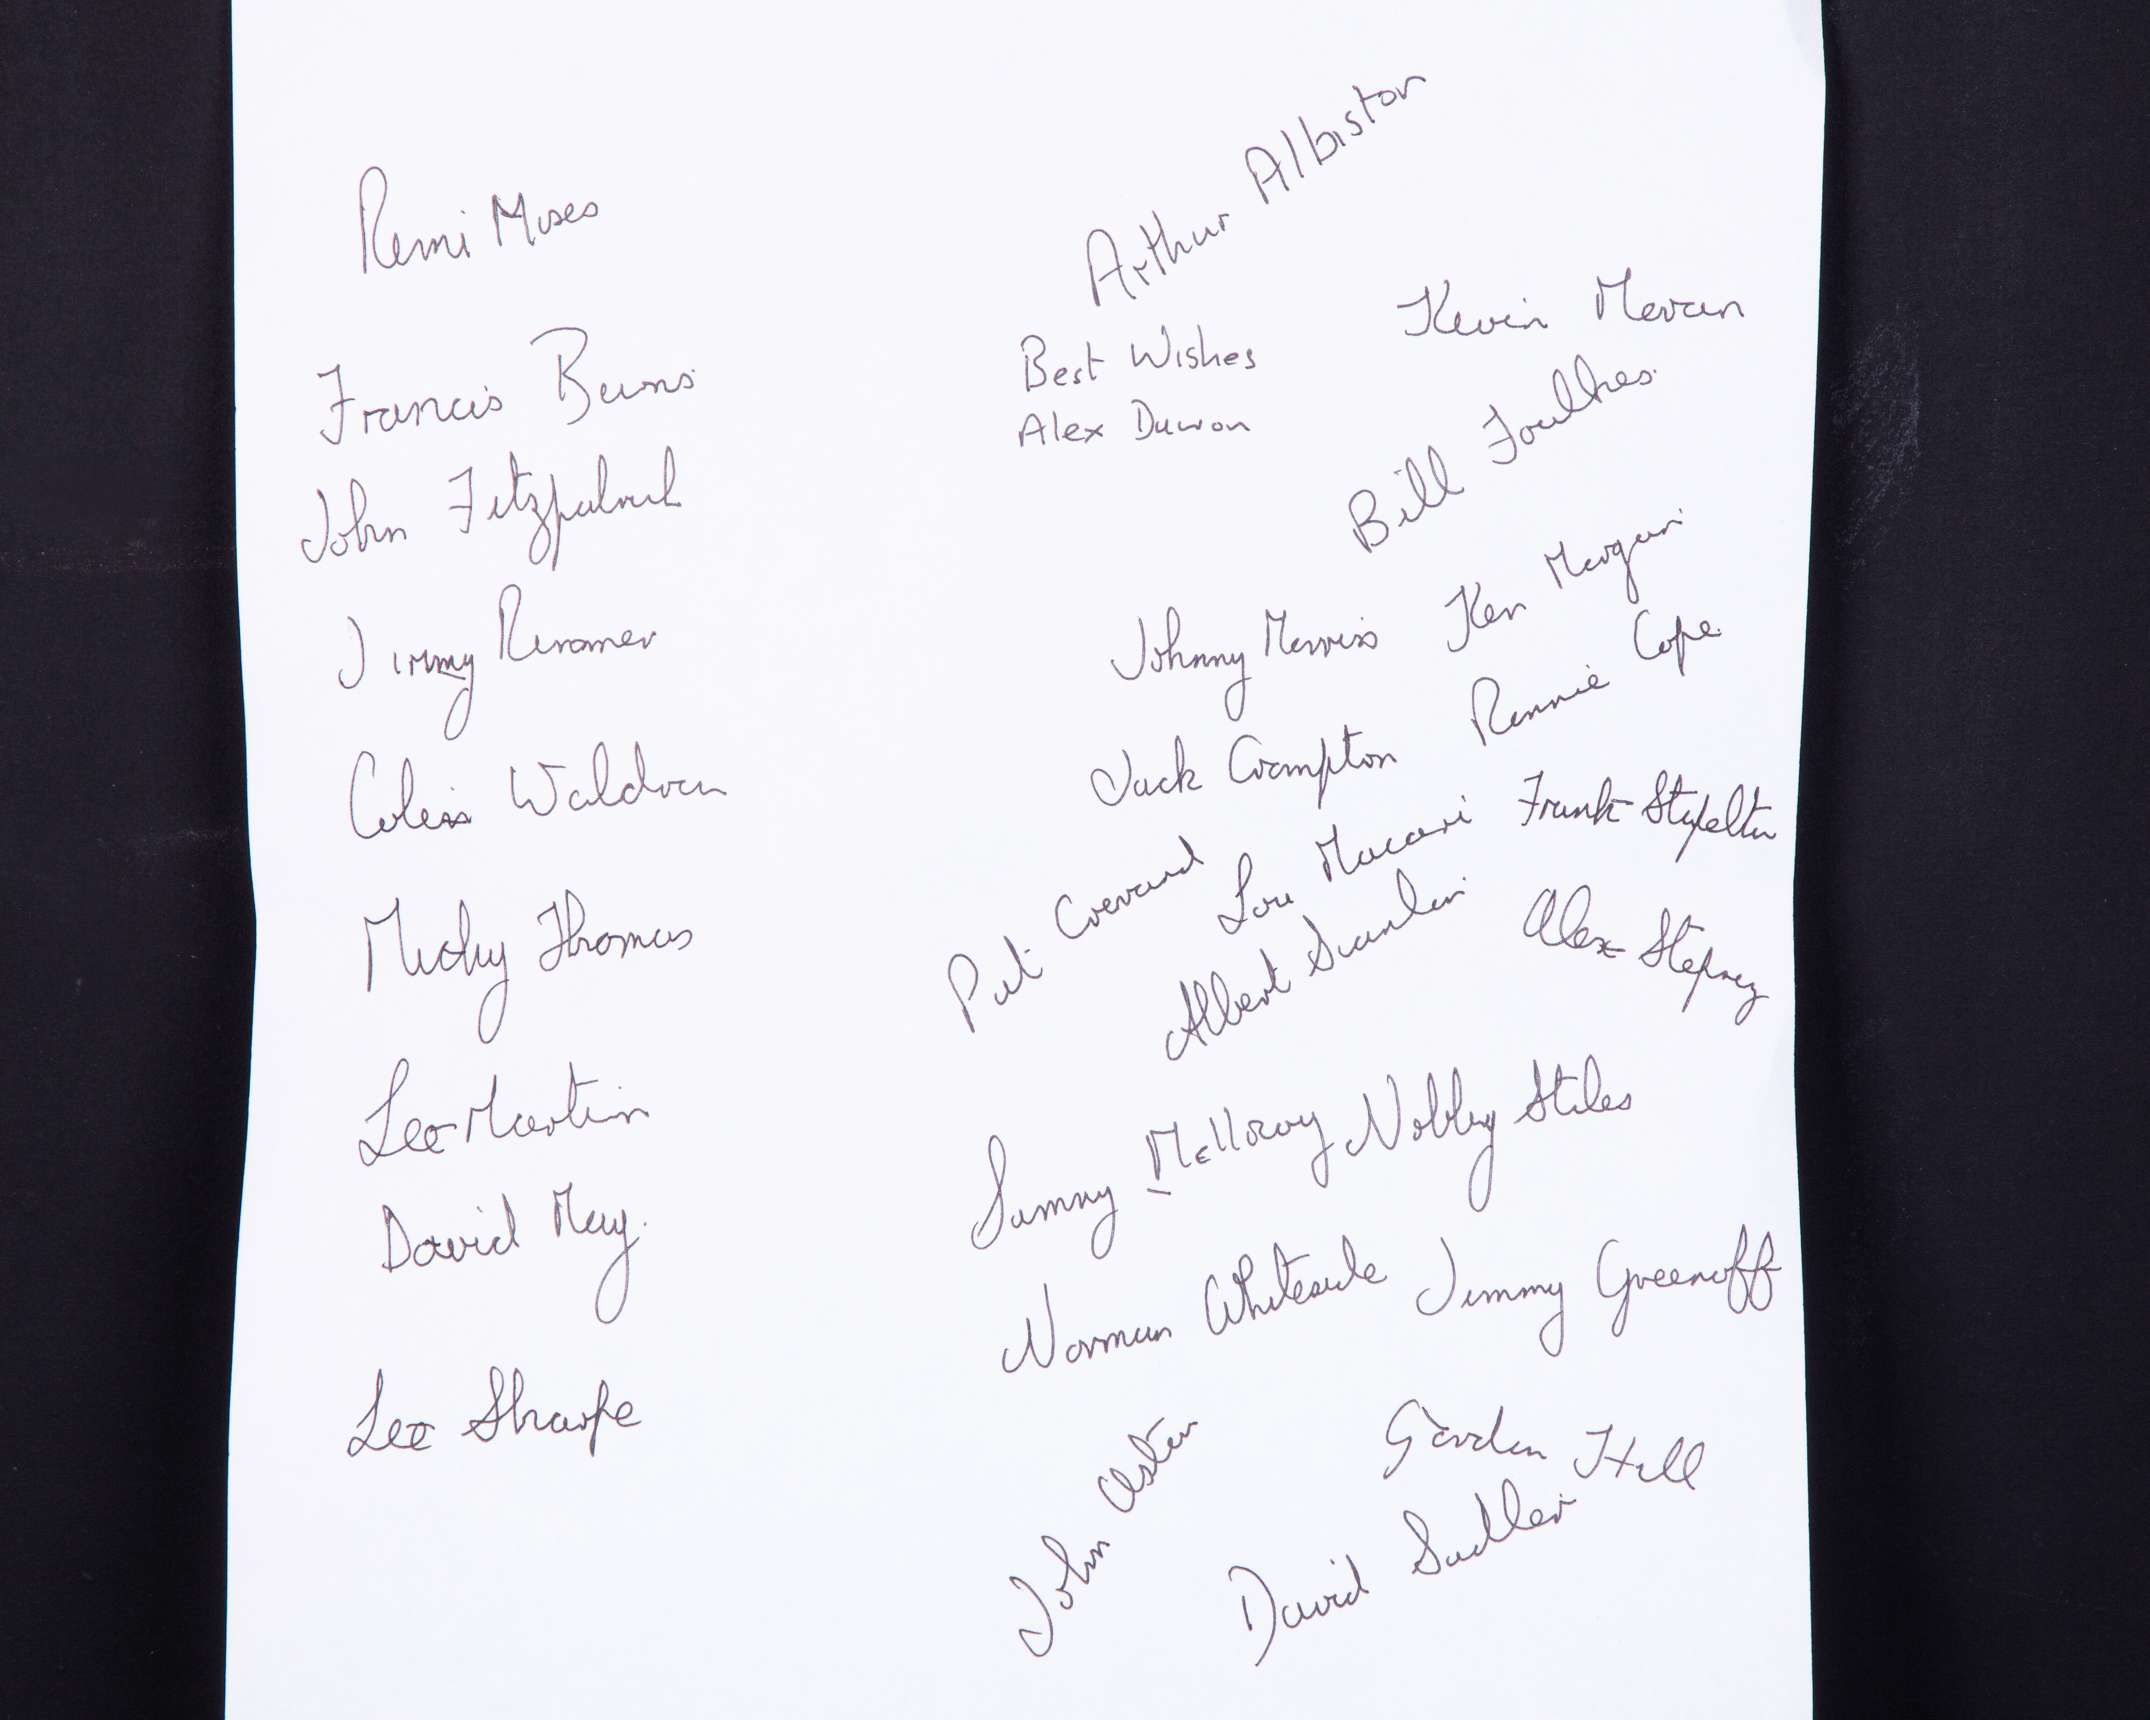 Remi Moses
Francis Burns
John Fitzpatrick
Jimmy Rimmer
Colin Waldron
Micky Thomas
Lee Martin
David May.
Lee Sharpe
Arthur Albiston
Kevin Moran
Best Wishes
Alex Dawson
Bill Foulkes
Johnny Morris
Ken Morgan
Jack Crompton
Ronnie Cope
Pat Crerand
Lou Macari
Frank Stapleton
Albert Scanlon
Alex Stepney
Sammy McIlroy
Nobby Stiles
Norman Whiteside
Jimmy Greenoff
John Aston
Gordon Hill
David Sadler